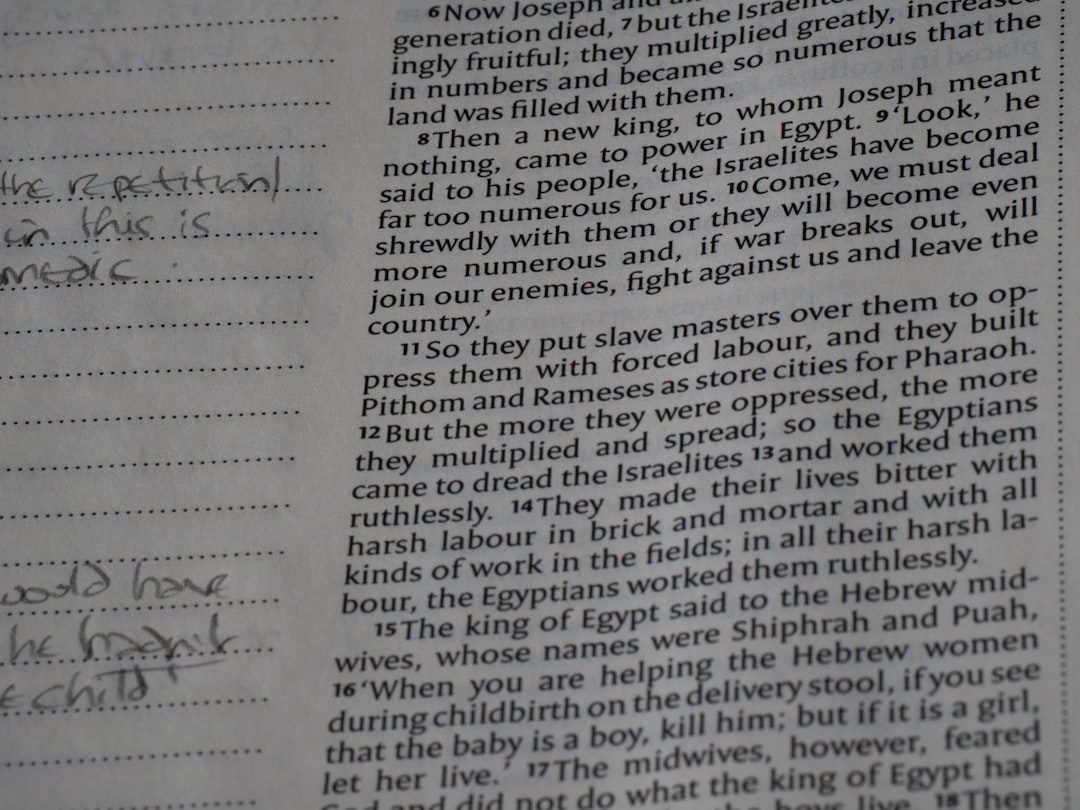 the repetition
in this is
would have
he hadn't
child
6 Now Joseph and
generation died, 7 but the Israelites
ingly fruitful; they multiplied greatly, increased
in numbers and became so numerous that the
land was filled with them.
8 Then a new king, to whom Joseph meant
nothing, came to power in Egypt. 9 ‘Look,’ he
said to his people, ‘the Israelites have become
far too numerous for us. 10 Come, we must deal
shrewdly with them or they will become even
more numerous and, if war breaks out, will
join our enemies, fight against us and leave the
country.’
11 So they put slave masters over them to op-
press them with forced labour, and they built
Pithom and Rameses as store cities for Pharaoh.
12 But the more they were oppressed, the more
they multiplied and spread; so the Egyptians
came to dread the Israelites 13 and worked them
ruthlessly. 14 They made their lives bitter with
harsh labour in brick and mortar and with all
kinds of work in the fields; in all their harsh la-
bour, the Egyptians worked them ruthlessly.
15 The king of Egypt said to the Hebrew mid-
wives, whose names were Shiphrah and Puah,
16 ‘When you are helping the Hebrew women
during childbirth on the delivery stool, if you see
that the baby is a boy, kill him; but if it is a girl,
let her live.’ 17 The midwives, however, feared
God and did not do what the king of Egypt had
the boys live. 18 Then